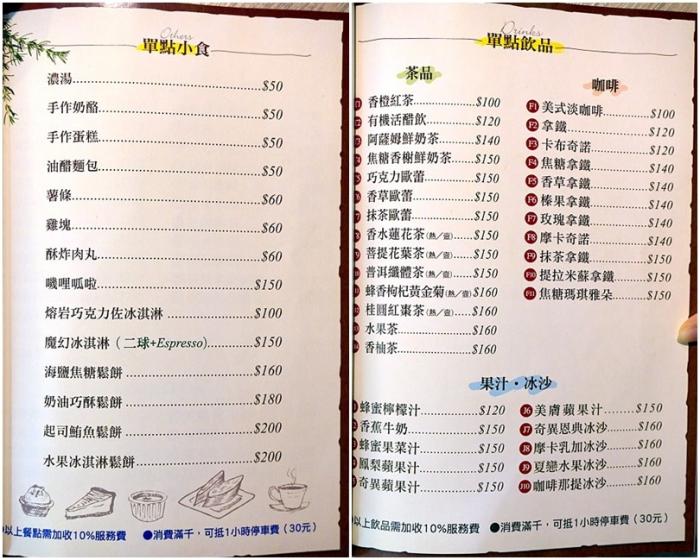 Others
單點小食
濃湯 $50
手作奶酪 $50
手作蛋糕 $50
油醋麵包 $50
薯條 $60
雞塊 $60
酥炸肉丸 $60
嘰哩呱啦 $150
熔岩巧克力佐冰淇淋 $100
魔幻冰淇淋（二球+Espresso) $150
海鹽焦糖鬆餅 $160
奶油巧酥鬆餅 $180
起司鮪魚鬆餅 $200
水果冰淇淋鬆餅 $200
以上餐點需加收10%服務費 ●消費滿千，可抵1小時停車費（30元）
Drinks
單點飲品
茶品
香橙紅茶 $100
有機活醋飲 $120
阿薩姆鮮奶茶 $140
焦糖香榭鮮奶茶 $150
巧克力歐蕾 $150
香草歐蕾 $150
抹茶歐蕾 $150
香水蓮花茶(熱／壺) $150
菩提花葉茶(熱／壺) $150
普洱纖體茶(熱／壺) $150
蜂香枸杞黃金菊(熱／壺) $160
桂圓紅棗茶(熱／壺) $160
水果茶 $160
香柚茶 $160
咖啡
F1 美式淡咖啡 $100
F2 拿鐵 $120
F3 卡布奇諾 $120
F4 焦糖拿鐵 $140
F5 香草拿鐵 $140
F6 榛果拿鐵 $140
F7 玫瑰拿鐵 $140
F8 摩卡奇諾 $140
F9 抹茶拿鐵 $150
F10 提拉米蘇拿鐵 $150
F11 焦糖瑪琪雅朵 $150
果汁・冰沙
蜂蜜檸檬汁 $120
香蕉牛奶 $150
蜂蜜果菜汁 $150
鳳梨蘋果汁 $150
奇異蘋果汁 $150
J6 美膚蘋果汁 $150
J7 奇異恩典冰沙 $160
J8 摩卡乳加冰沙 $160
J9 夏戀水果冰沙 $160
J10 咖啡那提冰沙 $160
以上飲品需加收10%服務費 ●消費滿千，可抵1小時停車費（30元）